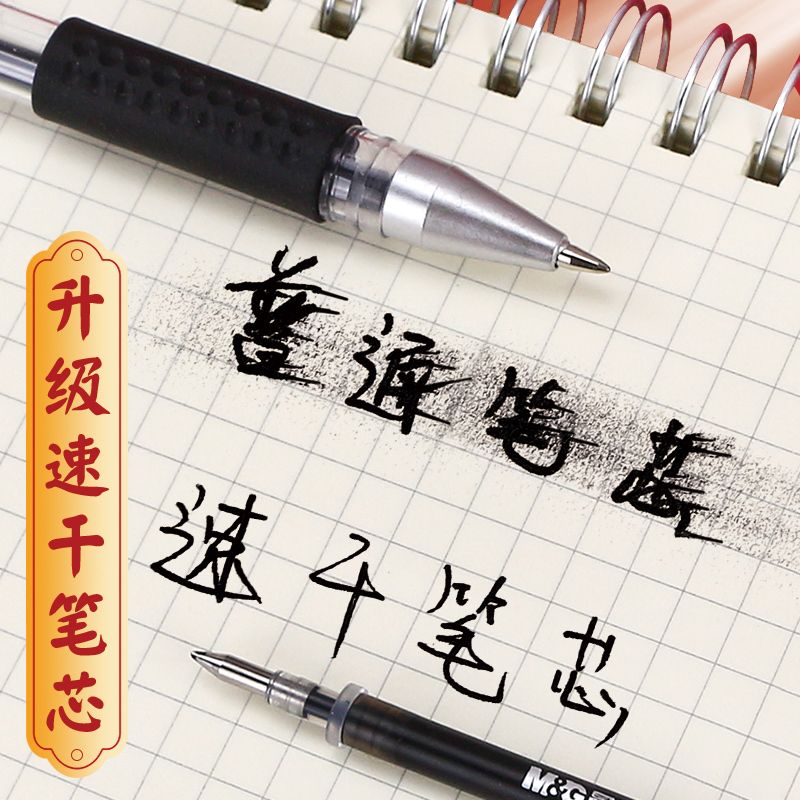 升级速干笔芯
普通笔芯
速干笔芯
M&G